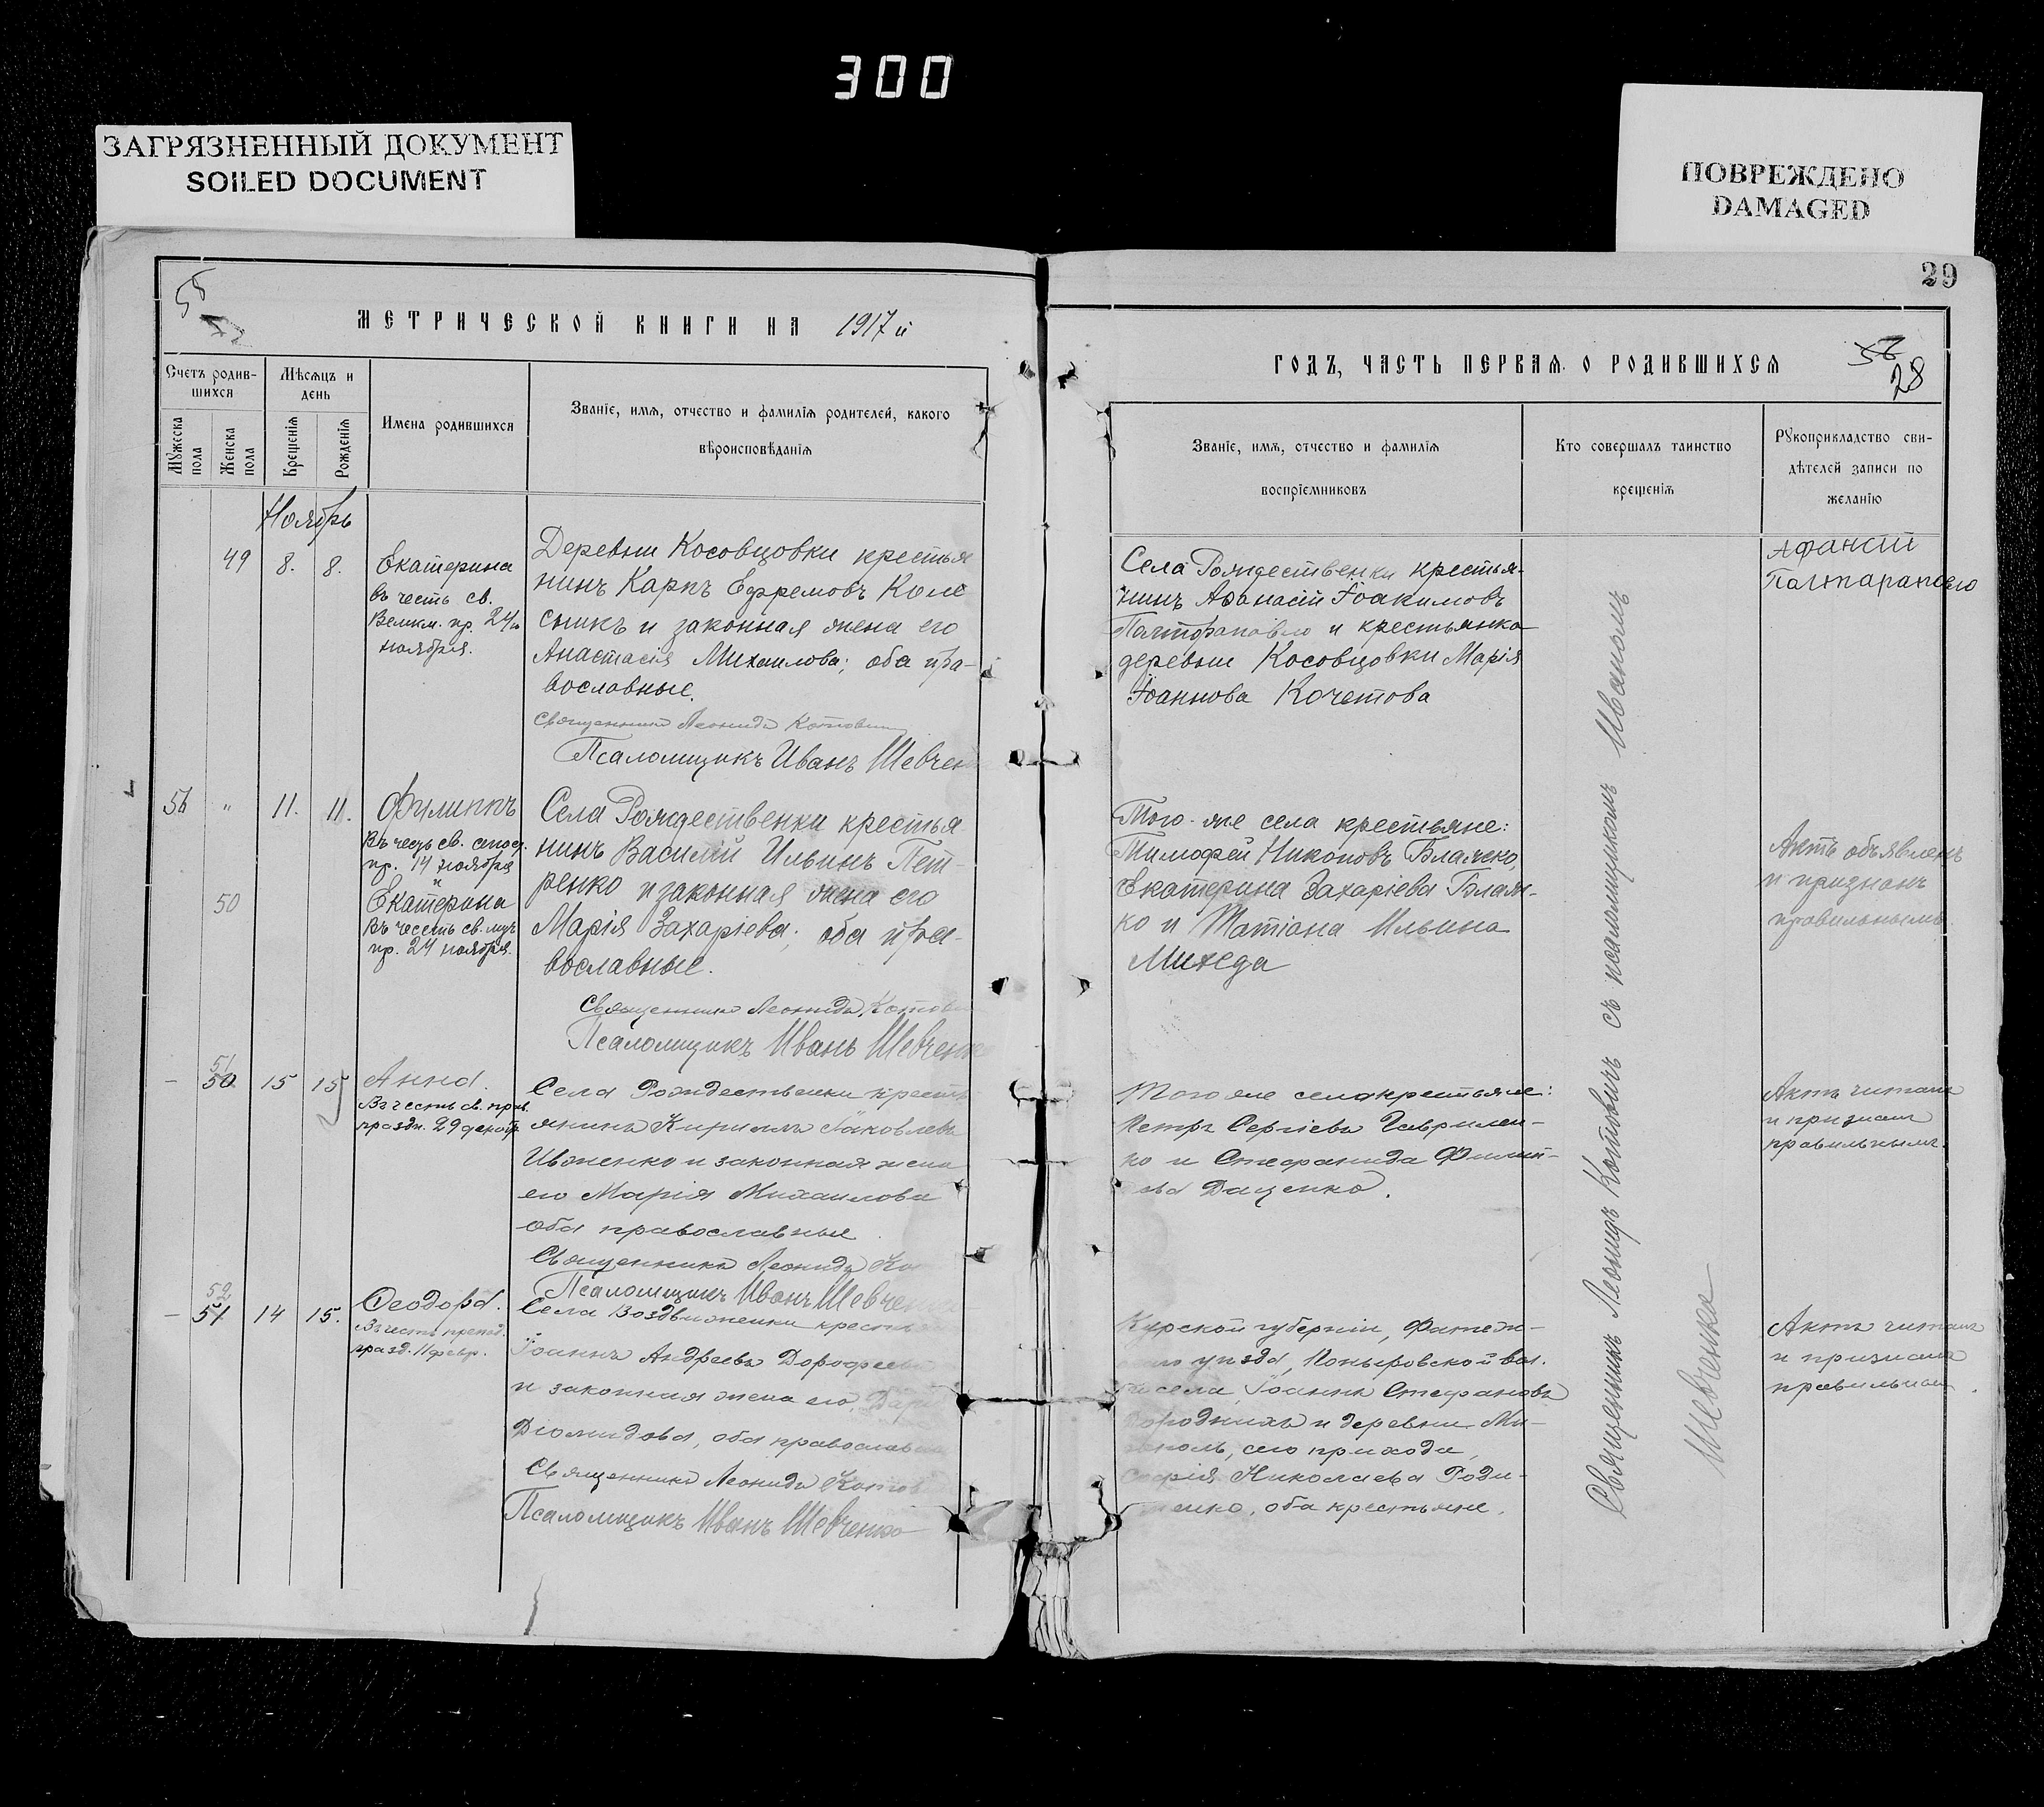 300
ЗАГРЯЗНЕННЫЙ ДОКУМЕНТ
SOILED DOCUMENT
ПОВРЕЖДЕНО
DAMAGED
29
58
МЕТРИЧЕСКОЙ КНИГИ НА 1917 й
Счетъ родив-
шихся
Мѣсяцъ и
день
Мужеска
пола
Женска
пола
Крещенія
Рожденія
Имена родившихся
Званіе, имя, отчество и фамилія родителей, какого
вѣроисповѣданія
Ноябрь
49 8. 8.
Екатерина
въ честь св.
Велик. пр. 24го
ноября.
Деревни Косовцовки крестья
нинъ Карпъ Ефремовъ Коле
сникъ и законная жена его
Анастасія Михаилова; оба пра-
вославные.
Священникъ Леонидъ Котович
Псаломщикъ Иванъ Шевчен
56 " 11. 11.
Филиппъ
Въ честь св. апост.
пр. 14 ноября
и
50
Екатерина
Въ честь св. муч.
пр. 24 ноября.
Села Рождественки крестья
нинъ Василій Ильинъ Пет-
ренко и законная жена его
Марія Захаріева; оба пра-
вославные.
Священникъ Леонидъ Котови
Псаломщикъ Иванъ Шевченко
51
— 50 15 15
Анна.
Въ честь св. прав.
праздн. 29 декабр.
Села Рождественки кресть
янинъ Кириллъ Іаковлевъ
Ивженко и законная жена
его Марія Михаилова
оба православные
Священникъ Леонидъ Ко
Псаломщикъ Иванъ Шевченко
52
— 51 14 15.
Феодора.
Въ честь препод.
празд. 11 февр.
Села Воздвиженки крестья
Іоаннъ Андреевъ Дорофеев
и законная жена его Дарі
Діомидова, оба православн
Священникъ Леонидъ Котов
Псаломщикъ Иванъ Шевченко
ГОДЪ, ЧАСТЬ ПЕРВАЯ О РОДИВШИХСЯ
28
Званіе, имя, отчество и фамилія
воспріемниковъ
Кто совершалъ таинство
крещенія
Рукоприкладство сви-
дѣтелей записи по
желанію
Села Рождественки крестья-
нинъ Афанасій Іоакимовъ
и крестьянка
деревни Косовцовки Марія
Іоаннова Кочетова
Афансій
Того-же села крестьяне:
Тимофей Никоновъ Блажко,
Екатерина Захаріева Блаж-
ко и Татіана Ильина
Михеда
Актъ объявленъ
и признанъ
правильнымъ
Того же села крестьяне:
Петръ Сергіевъ Гаврилен-
ко и Стефанида Филип-
ова Даценко.
Актъ читанъ
и признанъ
правильнымъ.
Курской губерніи, Фатеж-
уѣзда, Поныровской вол.
села, Іоаннъ Стефановъ
и деревни Ми-
сего прихода,
Николаева Роди-
ченко, оба крестьяне.
Актъ читанъ
и признанъ
правильнымъ.
Священникъ Леонидъ Котовичъ съ псаломщикомъ Иваномъ
Шевченко